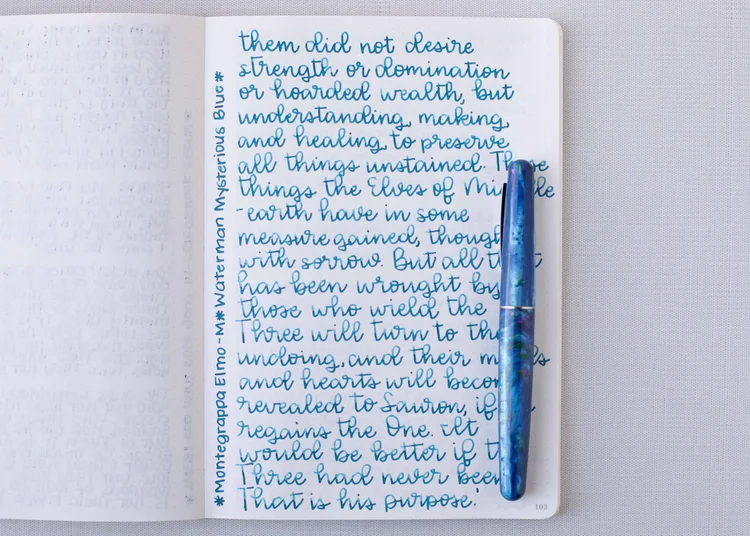 them did not desire
strength or domination
or hoarded wealth, but
understanding, making,
and healing, to preserve
all things unstained. These
things the Elves of Middle
-earth have in some
measure gained, though
with sorrow. But all that
has been wrought by
those who wield the
Three will turn to their
undoing, and their minds
and hearts will become
revealed to Sauron, if he
regains the One. It
would be better if the
Three had never been.
That is his purpose.'
*Montegrappa Elmo-M*Waterman Mysterious Blue*
103